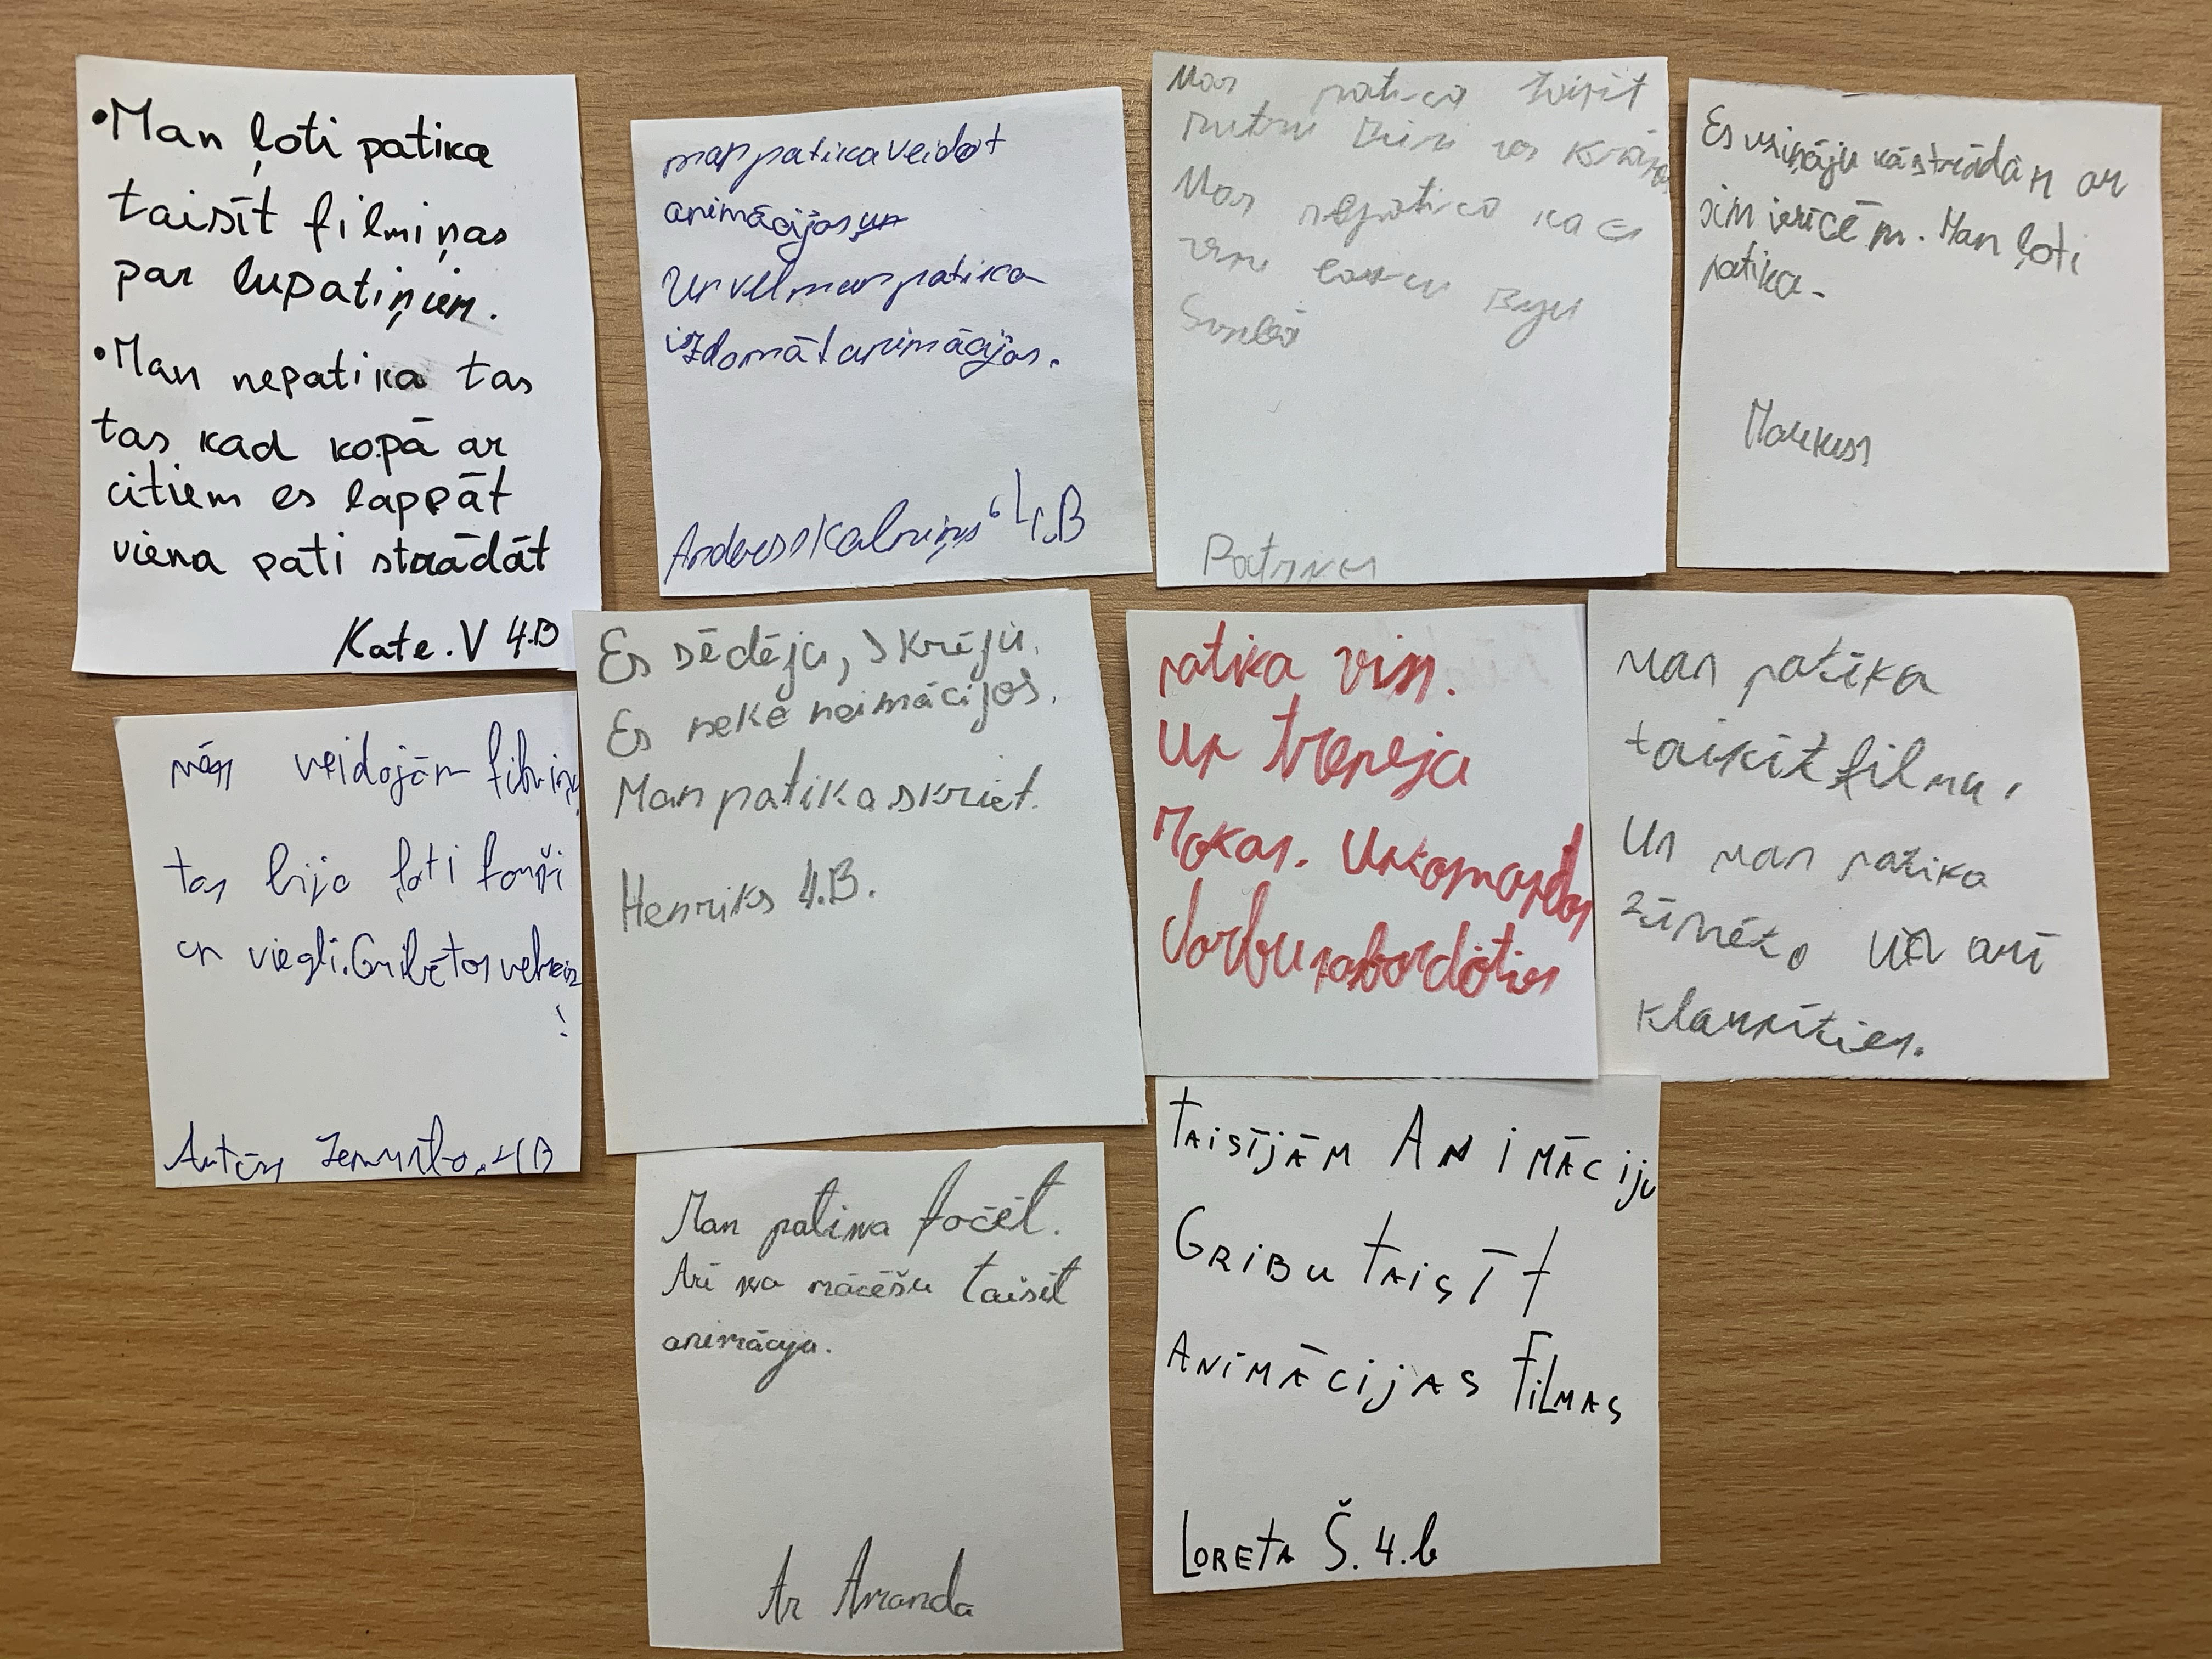 •Man ļoti patika
taisīt filmiņas
par lupatiņiem.
•Man nepatika tas
tas kad kopā ar
citiem es lappāt
viena pati strādāt
Kate.V 4.B
man patika veidot
animācijas un
Un vēl man patika
izdomāt animācijas.
4.B
Man patika taisīt
Man nepatika ka es
Es uzināju kā strādām ar
šim ierīcēm. Man ļoti
patika.
Markuss
mēs veidojām filmiņ
tas bija ļoti forši
un viegli. Gribētos velreiz
!
4B
Es sēdēju, skrēju.
Es neko neimācijos.
Man patika skriet.
Henriks 4.B.
patika viss.
Un treneja
Mokas. Un komandas
darbu sabordoties
man patika
taisīt filmu,
Un man patika
zīmēto un arī
klausīties.
Man patika fočēt.
Arī ka mācēšu taisīt
animācija.
Ar Amanda
TAISĪJĀM ANIMĀCIJU
GRIBU TAISĪT
ANIMĀCIJAS FILMAS
LORETA Š. 4.b